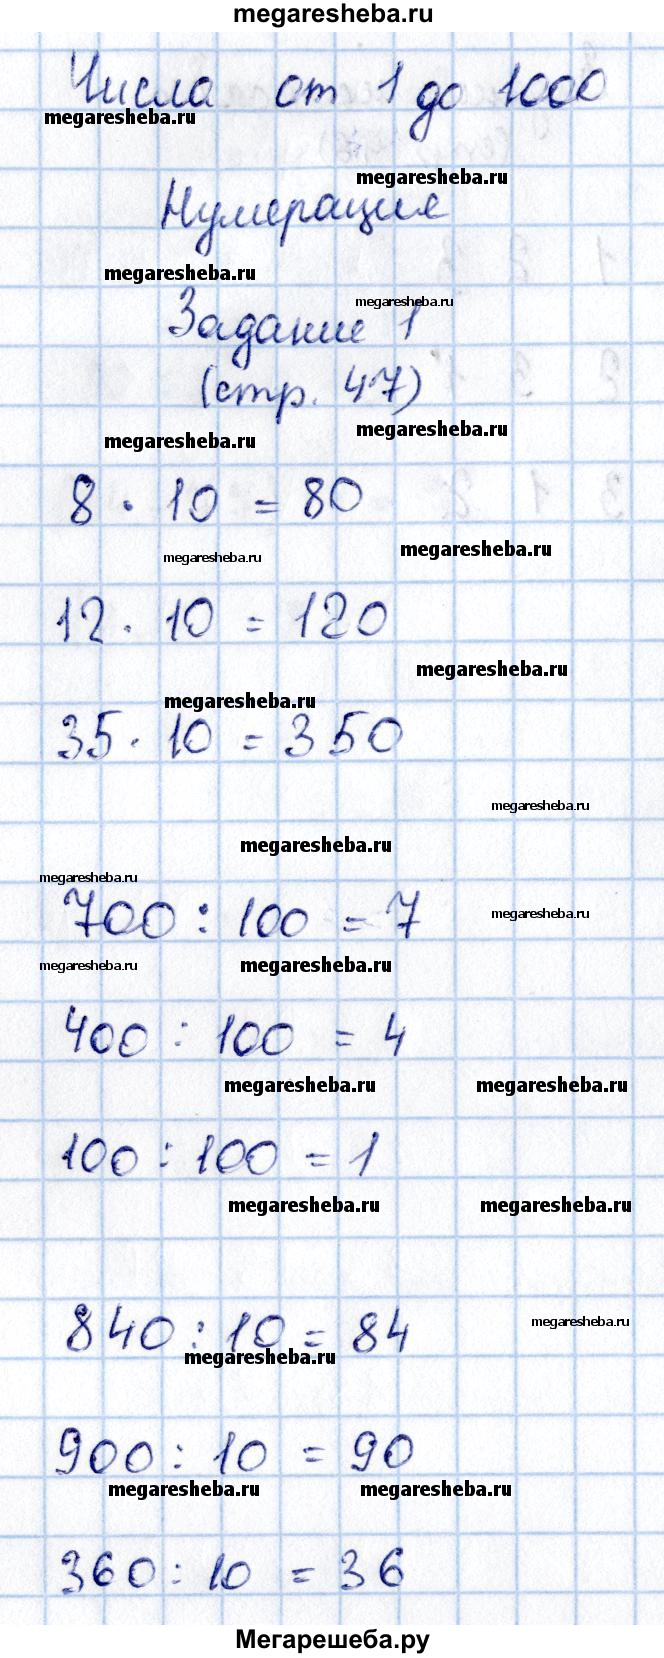 megaresheba.ru
Числа от 1 до 1000
megaresheba.ru
megaresheba.ru
Нумерация
megaresheba.ru
megaresheba.ru
Задание 1
(стр. 47)
megaresheba.ru
megaresheba.ru
8 · 10 = 80
megaresheba.ru
megaresheba.ru
12 · 10 = 120
megaresheba.ru
megaresheba.ru
35 · 10 = 350
megaresheba.ru
megaresheba.ru
megaresheba.ru
700 : 100 = 7
megaresheba.ru
megaresheba.ru
megaresheba.ru
400 : 100 = 4
megaresheba.ru
megaresheba.ru
100 : 100 = 1
megaresheba.ru
megaresheba.ru
840 : 10 = 84
megaresheba.ru
megaresheba.ru
900 : 10 = 90
megaresheba.ru
megaresheba.ru
360 : 10 = 36
Мегарешеба.ру